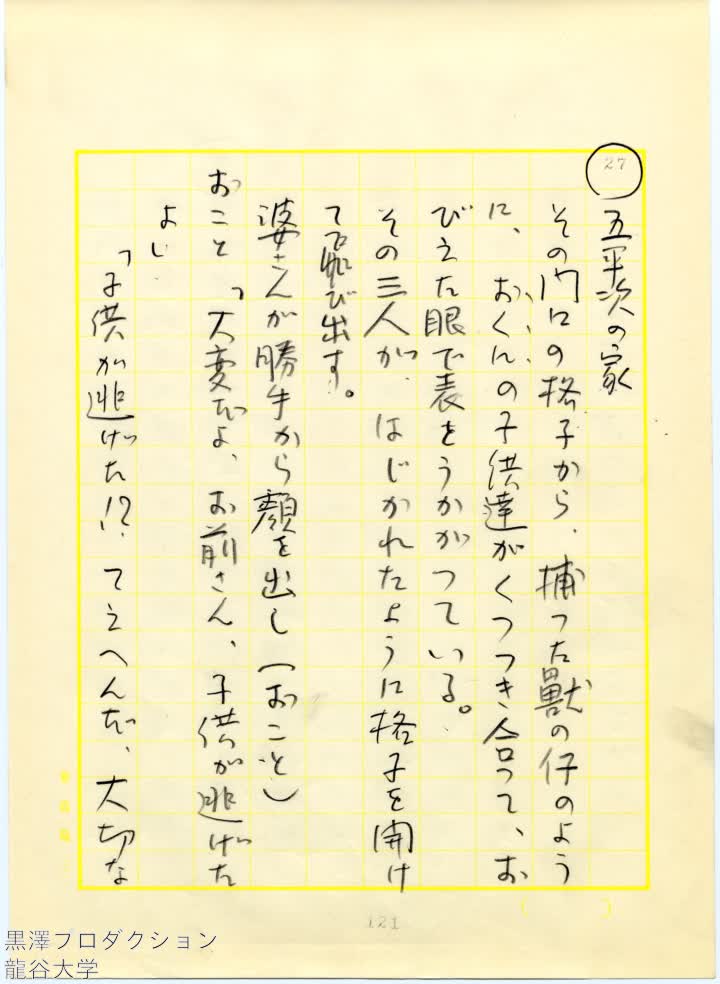 27
五平次の家
その門口の格子から、捕つた獣の仔のよう
に、おくんの子供達がくつつき合つて、お
びえた眼で表をうかがつている。
その三人が、はじかれたように格子を開け
て飛び出す。
婆さんが勝手から顔を出し(おこと)
おこと「大変だよ、お前さん、子供が逃げた
よ」
「子供が逃げた!?てえへんだ、大切な
121
黒澤プロダクション
龍谷大学